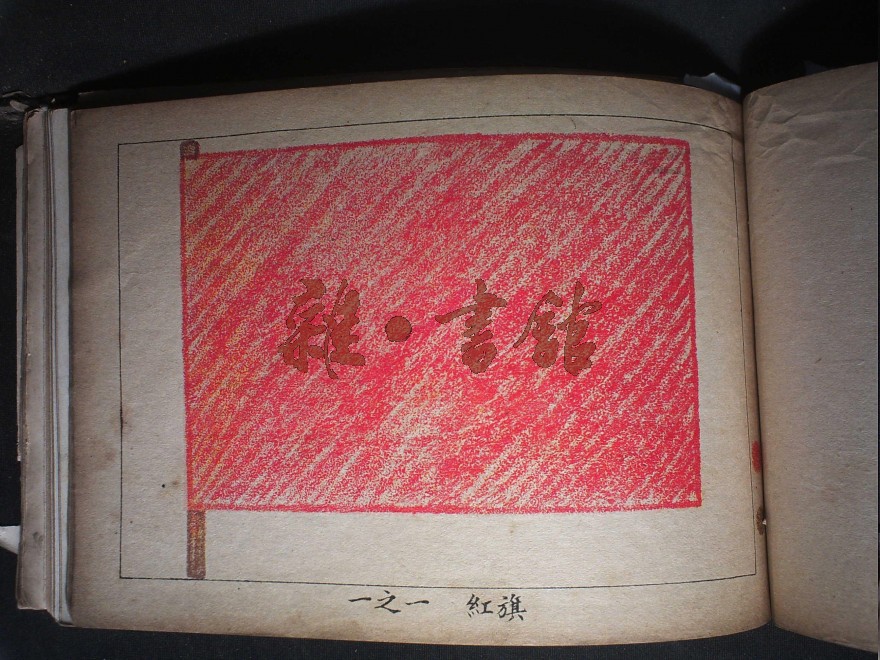 雜·書館
一之一 紅旗